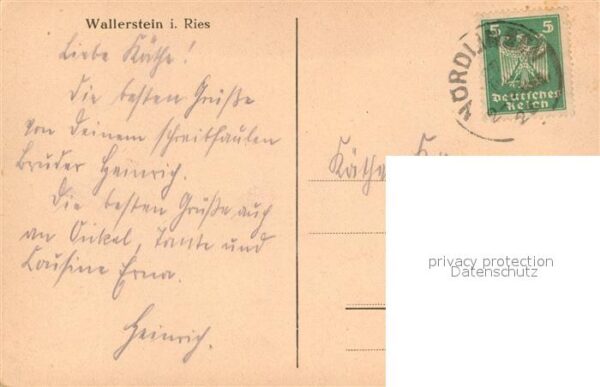 Wallerstein i. Ries
Liebe Käthe!
Die besten Grüße
von Deinem schreibfaulen
Bruder Heinrich.
Die besten Grüße auch
an Onkel, Tante und
Cousine Erna.
Heinrich.
5 5
Deutsches
Reich
NÖRDLINGEN
Käthe
privacy protection
Datenschutz